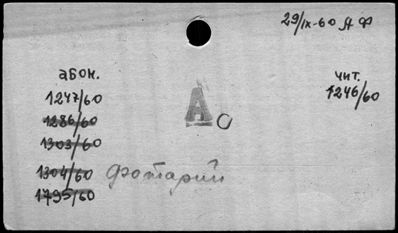 29/IX-60 А Ф
абон. чит.
1247/60 1246/60
1286/60
А о
1303/60
1304/60 фотарий
1795/60